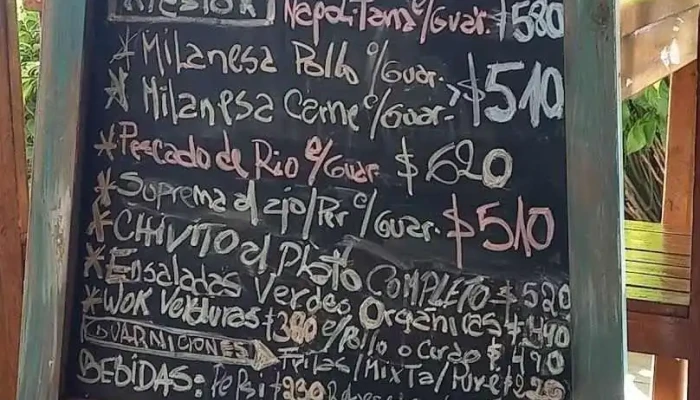 Napolitana c/Guar. $580
* Milanesa Pollo c/Guar.
* Milanesa Carne c/Guar. > $510
* Pescado de Rio c/Guar $620
* Suprema al ajo/Per c/Guar. $510
* CHIVITO al Plato COMPLETO $520
* Ensaladas Verdes Organicas $440
* WOK Verduras $380 c/Pollo o Cerdo $490
GUARNICIONES Fritas/Mixta/Puré $220
BEBIDAS: Pepsi